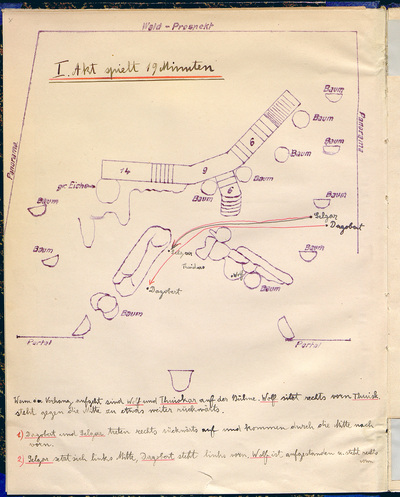 Wald - Prospekt
I. Akt spielt 19 Minuten
Panorama
Panorama
Baum
Baum
Baum
Baum
14
9
6
6
gr. Eiche
Baum
Baum
Baum
Gilgar
Dagobert
Baum
Baum
Baum
Gilgar
Wolf
Dagobert
Baum
Baum
Portal
Portal
Wenn der Vorhang aufgeht sind Wolf und auf der Bühne. Wolf sitzt rechts vorn
steht gegen die Mitte zu etwas weiter rückwärts.
1) Dagobert und Gilgar treten rechts rückwärts auf und kommen durch die Mitte nach
vorn.
2.) Gilgar setzt sich links Mitte, Dagobert steht links vorn. Wolf ist aufgestanden u. steht rechts
vorn